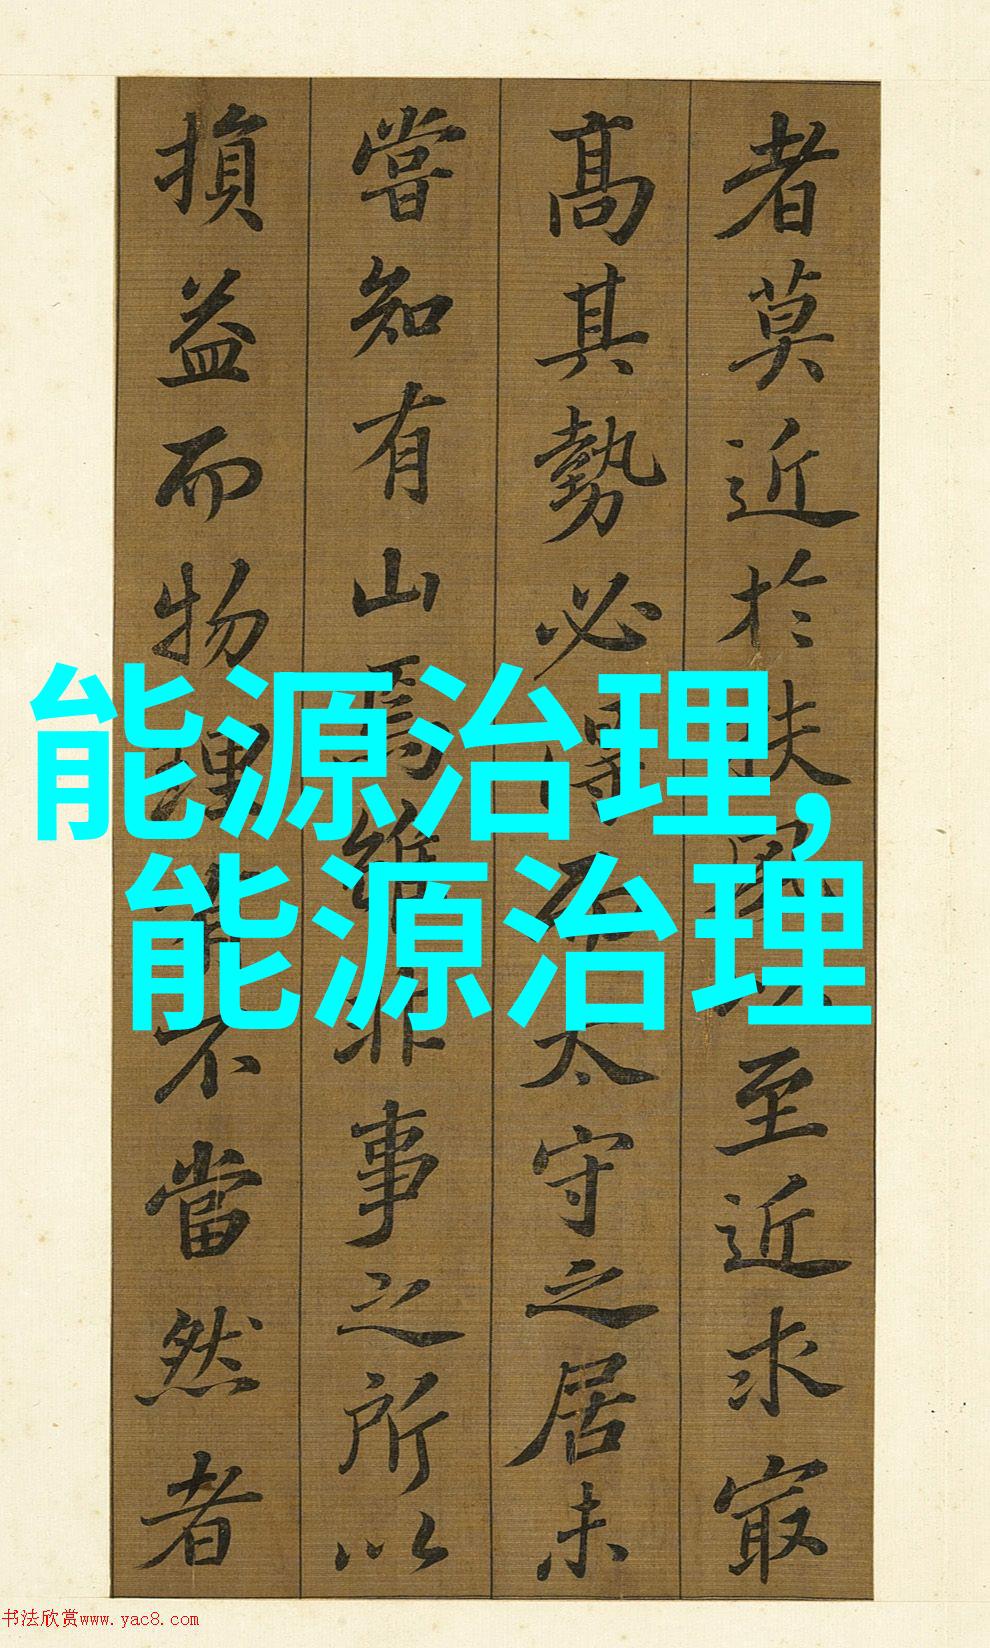 能源治理，
能源治理
者莫近於扶風至近求㝡
髙其勢必得而太守之居未
嘗知有山焉雖非事之所以
損益而物理不當然者
书法欣赏www.yac8.com